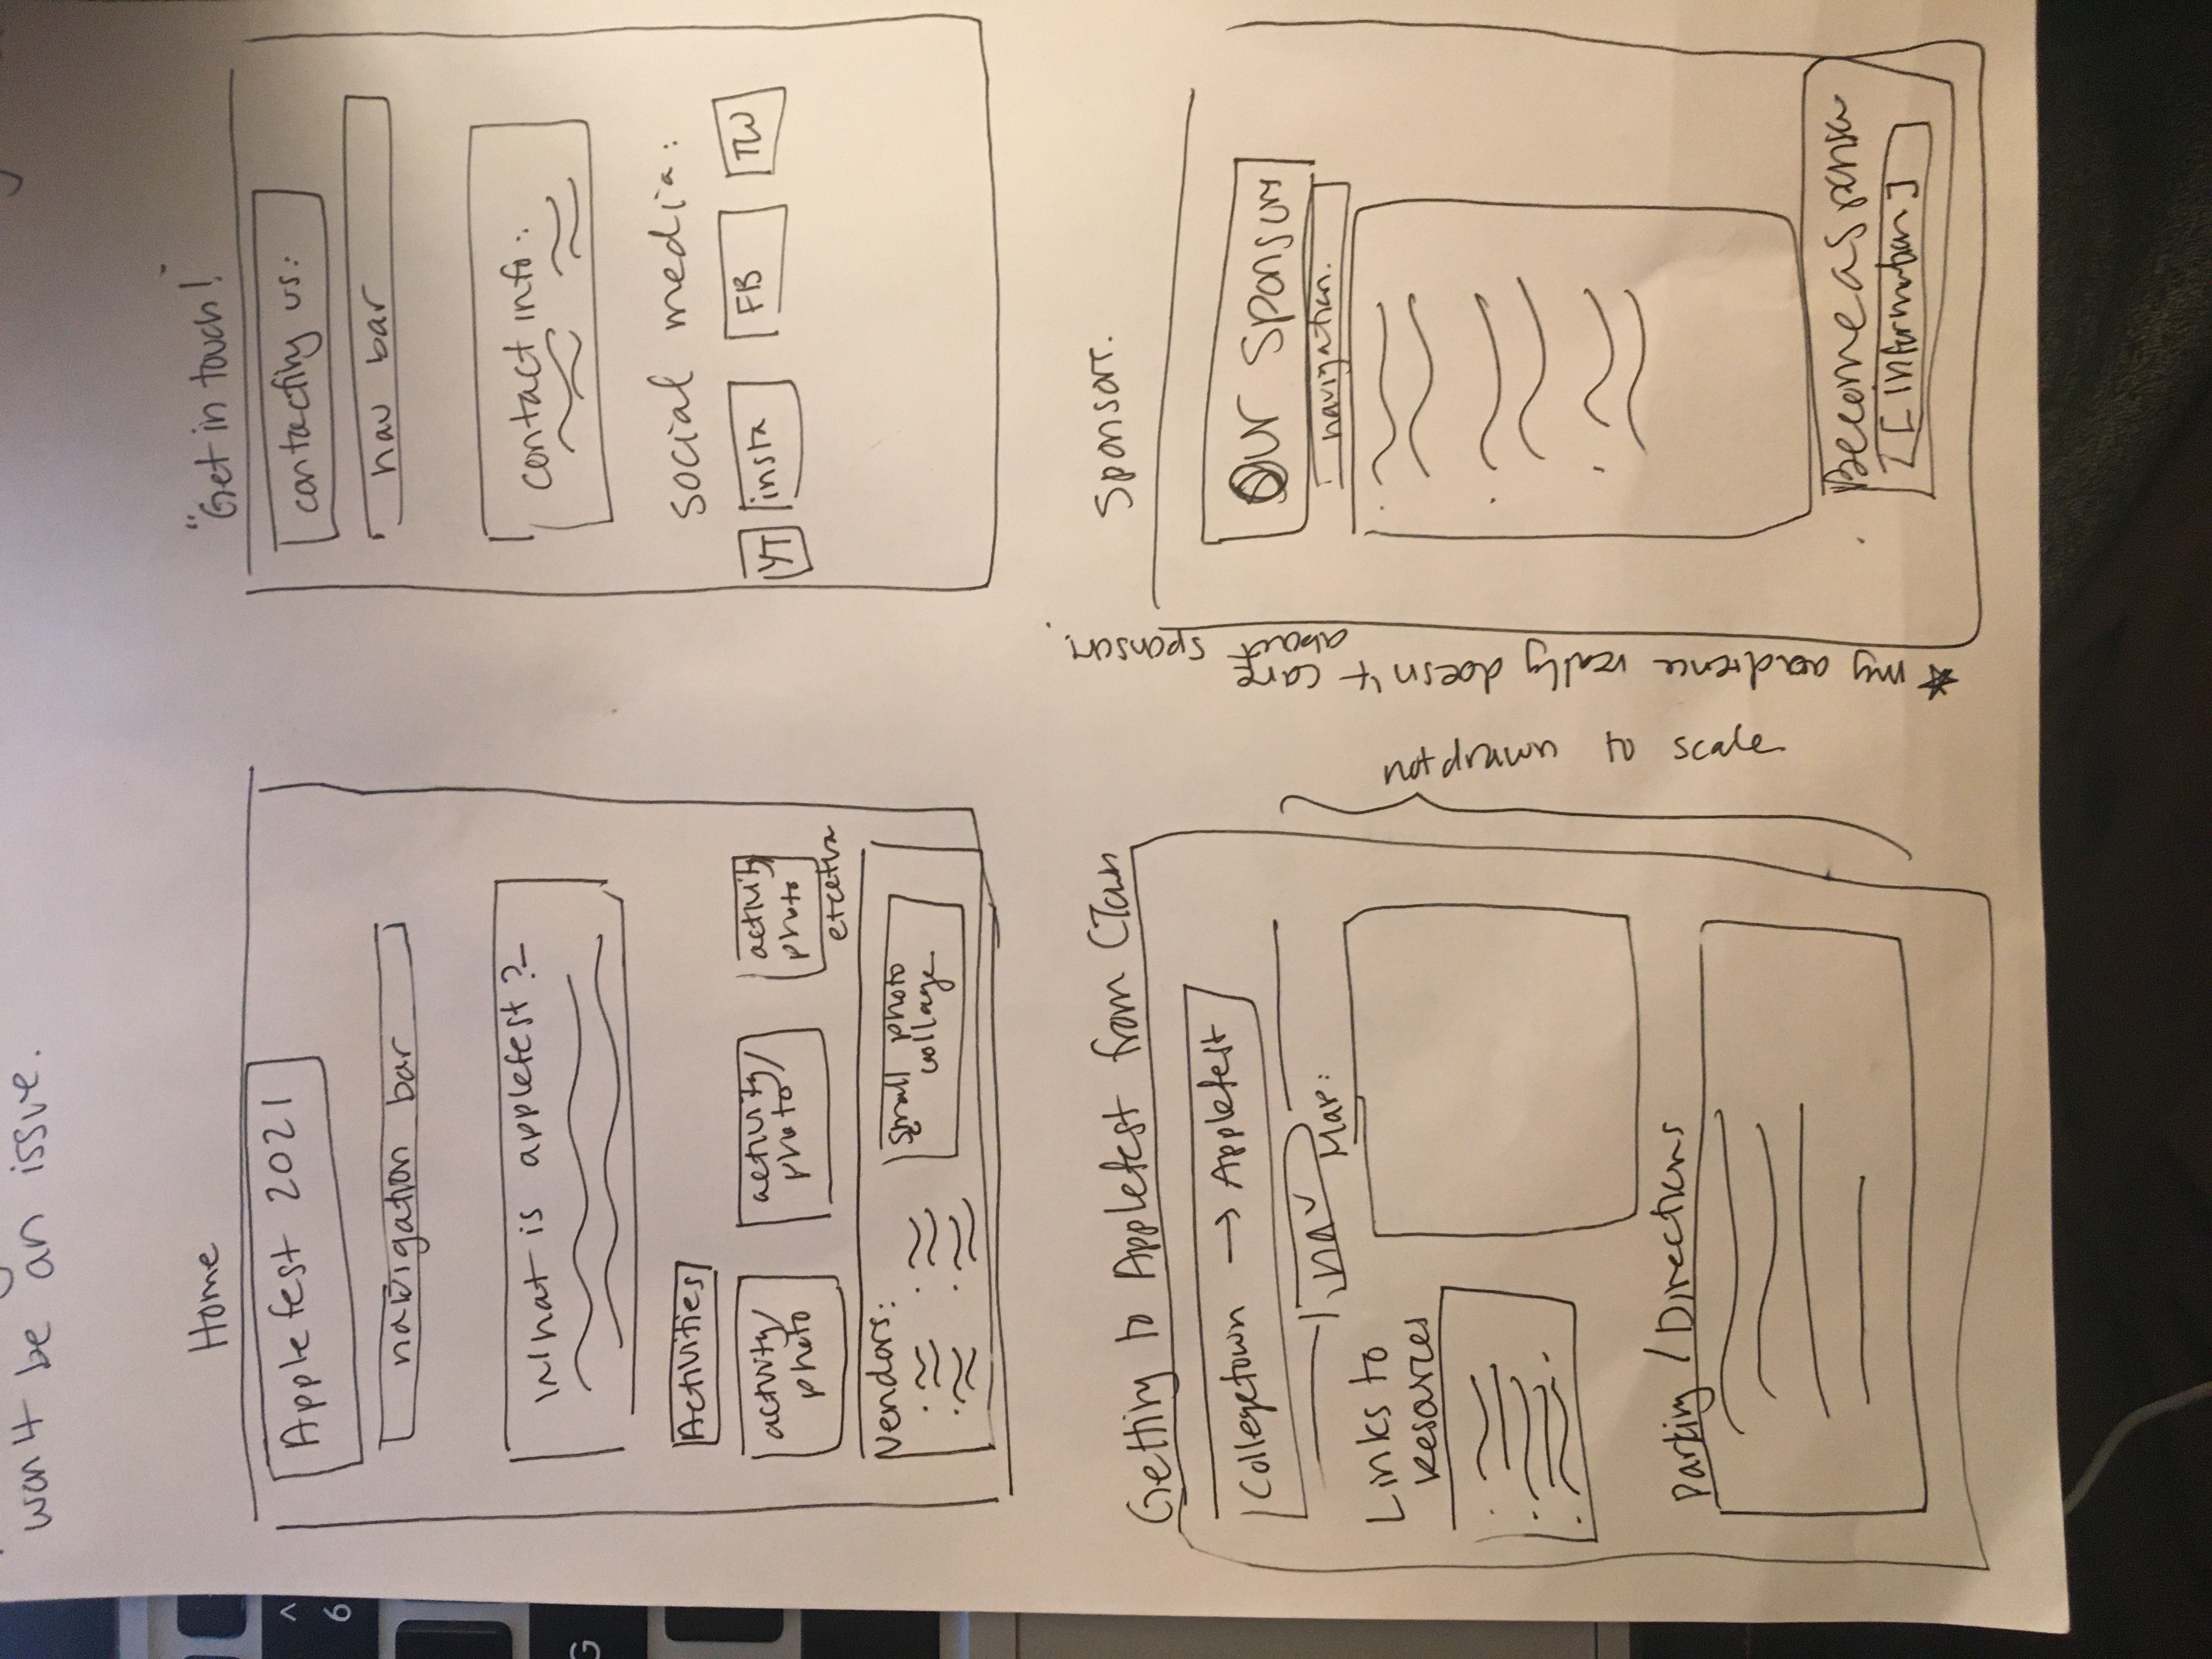 won't be an issue.
Home
Applefest 2021
navigation bar
What is applefest?
Activities
activity/
photo
activity/
photo
activity
photo
etcetra
Vendors:
small photo
collage
"Get in touch!"
contacting us:
nav bar
contact info:
social media:
YT
insta
FB
TW
Getting to Applefest from CTown
Collegetown → Applefest
nav
Map:
Links to
Resources
Parking / Directions
not drawn to scale
* my audience really doesn't care
about sponsors.
Sponsors.
Our Sponsors
navigation.
Become a sponsor
[information]
^
6
G